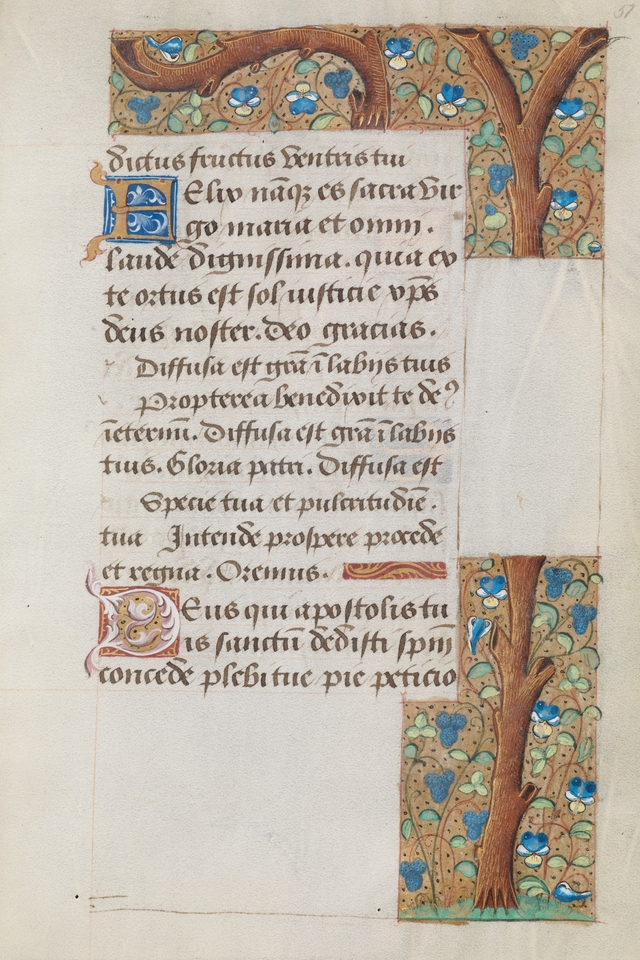 57
dictus fructus ventris tui
Elix nāq; es sacra vir
go maria et omni.
laude dignissima. quia ex
te ortus est sol iusticie xp̄s
deus noster. Deo gracias.
Diffusa est grā ī labijs tuis
Propterea benedixit te deꝰ
ieternū. Diffusa est grā ī labijs
tuis. Gloria patri. Diffusa est
Specie tua et pulcritudīe.
tua Intende prospere procede
et regna. Oremus.
DEus qui apostolis tu
is sanctū dedisti spm̄
concede plebi tue pie peticio